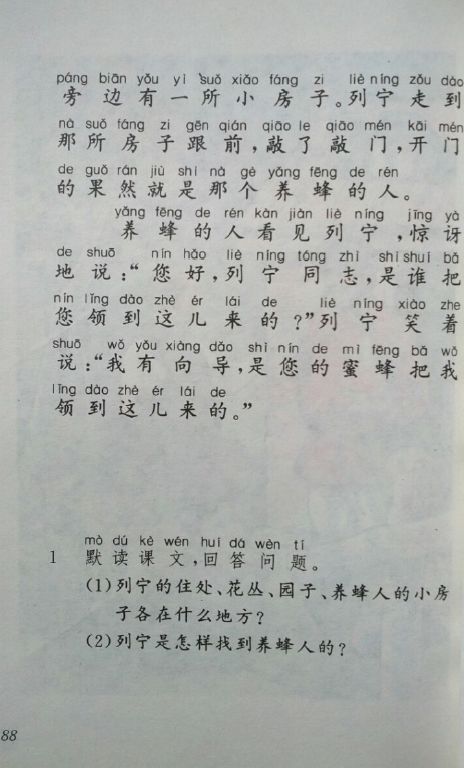 páng biān yǒu yì suǒ xiǎo fáng zi liè níng zǒu dào
旁边有一所小房子。列宁走到
nà suǒ fáng zi gēn qián qiāo le qiāo mén kāi mén
那所房子跟前,敲了敲门,开门
de guǒ rán jiù shì nà gè yǎng fēng de rén
的果然就是那个养蜂的人。
yǎng fēng de rén kàn jiàn liè níng jīng yà
养蜂的人看见列宁,惊讶
de shuō nín hǎo liè níng tóng zhì shì shuí bǎ
地说:“您好,列宁同志,是谁把
nín lǐng dào zhè ér lái de liè níng xiào zhe
您领到这儿来的?”列宁笑着
shuō wǒ yǒu xiàng dǎo shì nín de mì fēng bǎ wǒ
说:“我有向导,是您的蜜蜂把我
lǐng dào zhè ér lái de
领到这儿来的。”
mò dú kè wén huí dá wèn tí
1 默读课文,回答问题。
(1)列宁的住处、花丛、园子、养蜂人的小房
子各在什么地方?
(2)列宁是怎样找到养蜂人的?
88